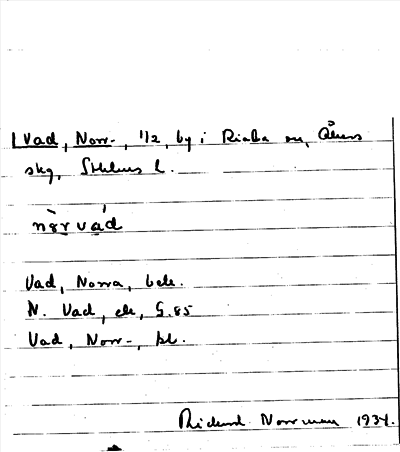 Vad, Norr-, 1/2, by i Riala sn, Åkers
skg, Sthlms l.
nørvad
Vad, Norra, bek.
N. Vad, ek, G.85
Vad, Norr-, kl.
Richard Norrman 1934.